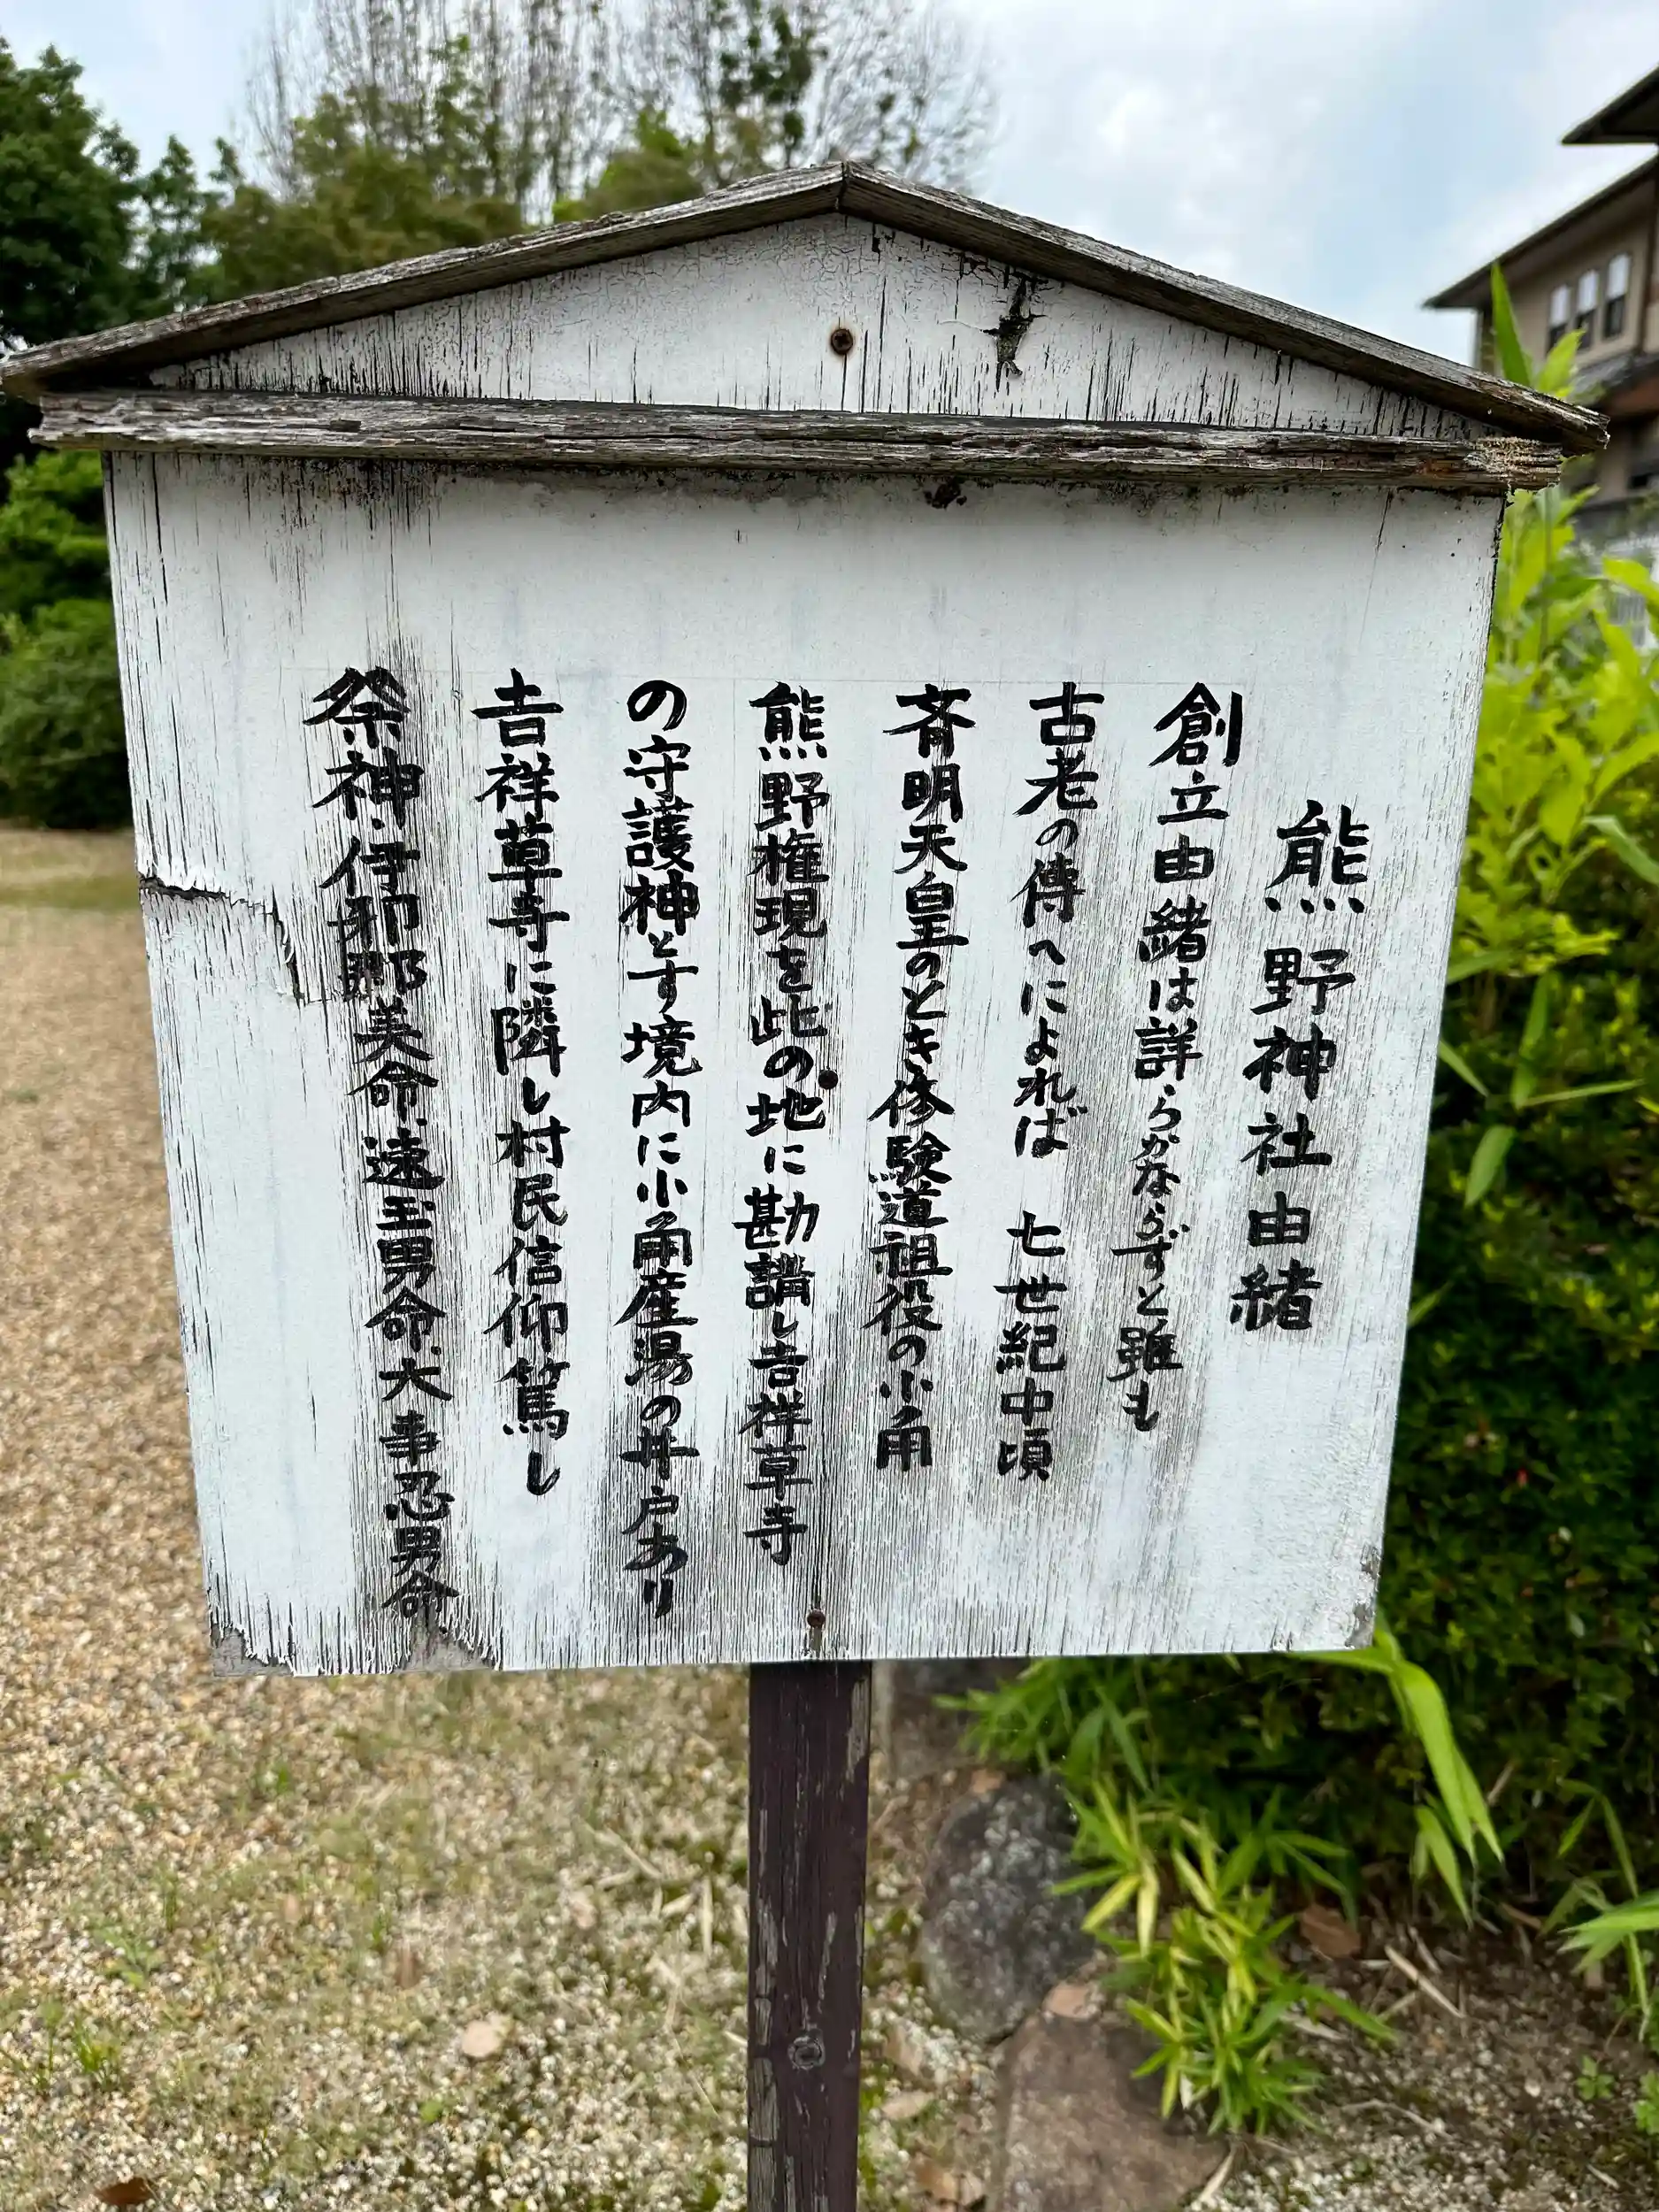 熊野神社由緒
創立由緒は詳らかならずと雖も
古老の傳へによれば 七世紀中頃
斉明天皇のとき修験道祖役の小角
熊野権現を此の地に勘請し吉祥草寺
の守護神とす境内に小角産湯の井戸あり
吉祥草寺に隣し村民信仰篤し
祭神、伊邪那美命、速玉男命、大事忍男命